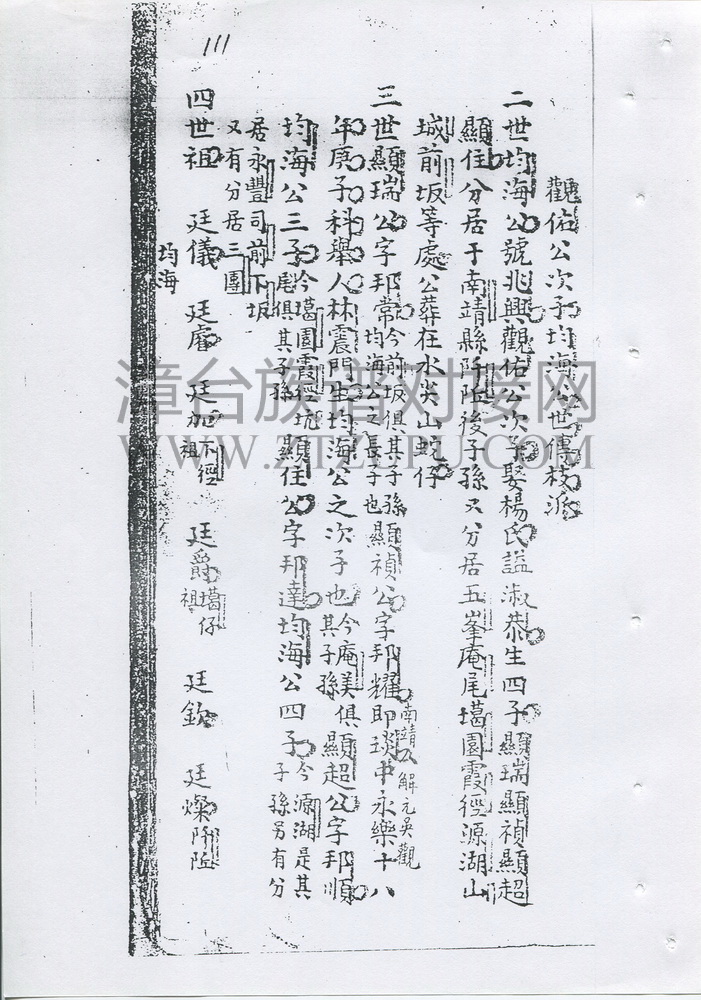 111
觀佑公次子均海公世傳枝派
二世均海公號兆興觀佑公次子娶楊氏謚淑恭生四子顯瑞顯禎顯超
顯住分居于南靖縣阡陌後子孫又分居五峯庵尾墈園霞徑源湖山
城前坂等處公葬在水尖山蛇仔
三世顯瑞公字邦常今前坂俱其子孫均海公之長子也顯禎公字邦耀即琰中永樂十八南靖解元吳觀
年庚子科舉人林震門生均海公之次子也今庵美俱其子孫顯超公字邦順
均海公三子今墈園霞徑坑尾俱其子孫顯住公字邦達均海公四子今源湖是其子孫另有分
居永豐司前下坂
又有分居三團
四世祖 廷儀 廷睿 廷加下徑祖 廷爵墈仔祖 廷欽 廷燦
均海
漳台族普对接网
WWW.ZTZUPU.COM